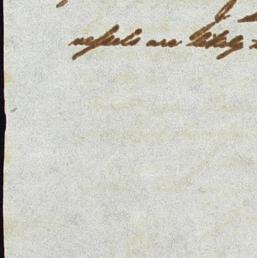 vessels are likely